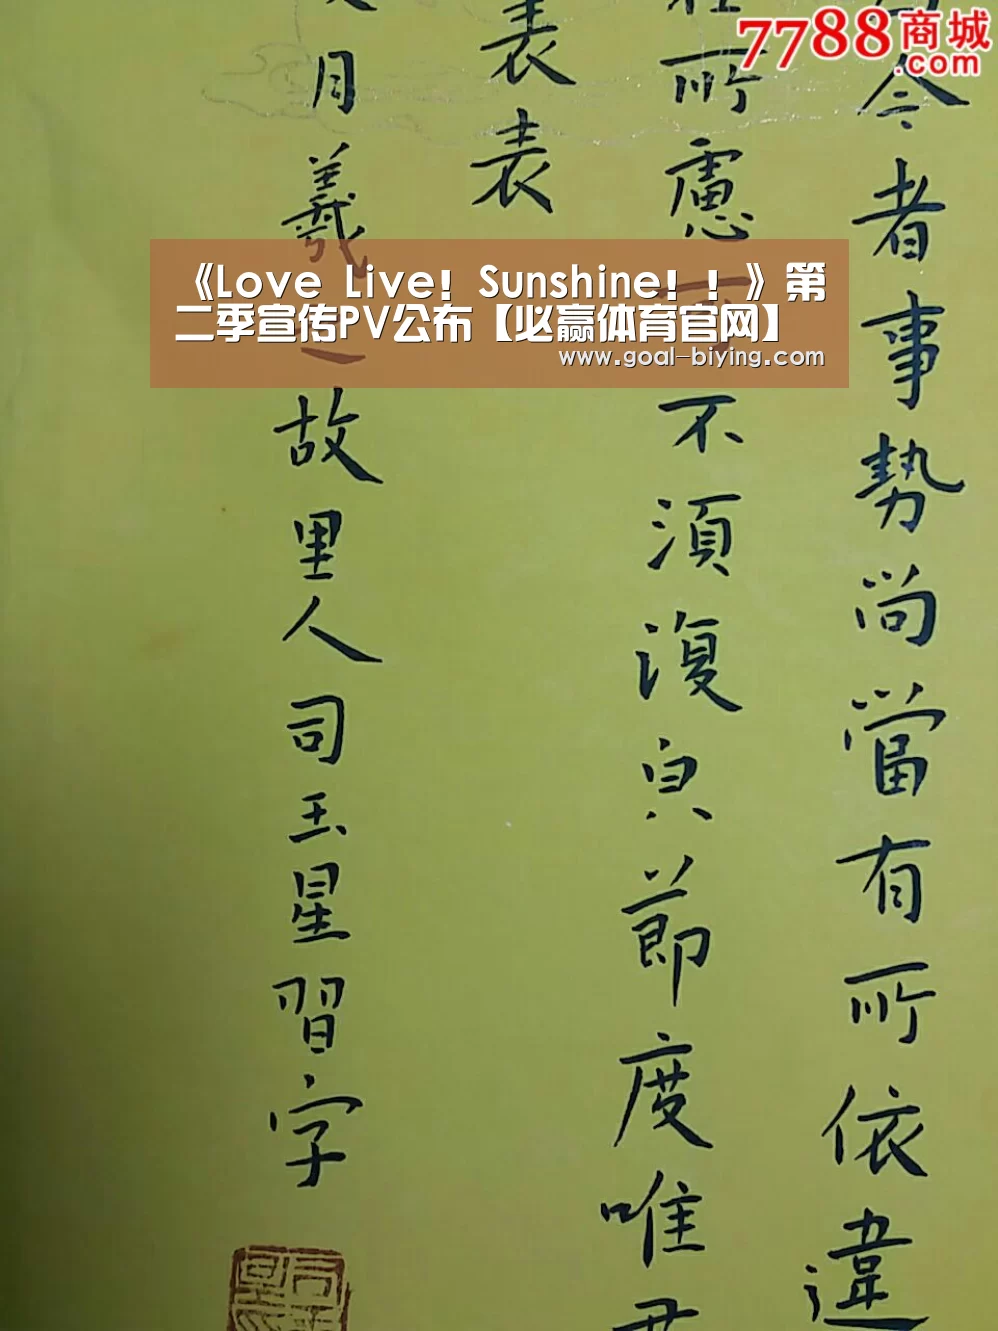 7788商城
.com
《Love Live！Sunshine！！》第
二季宣传PV公布【必赢体育官网】
www.goal-biying.com
令者事勢尚當有所依違
所慮可不須復皃節度唯君
表表
月義之故里人司玉星習字